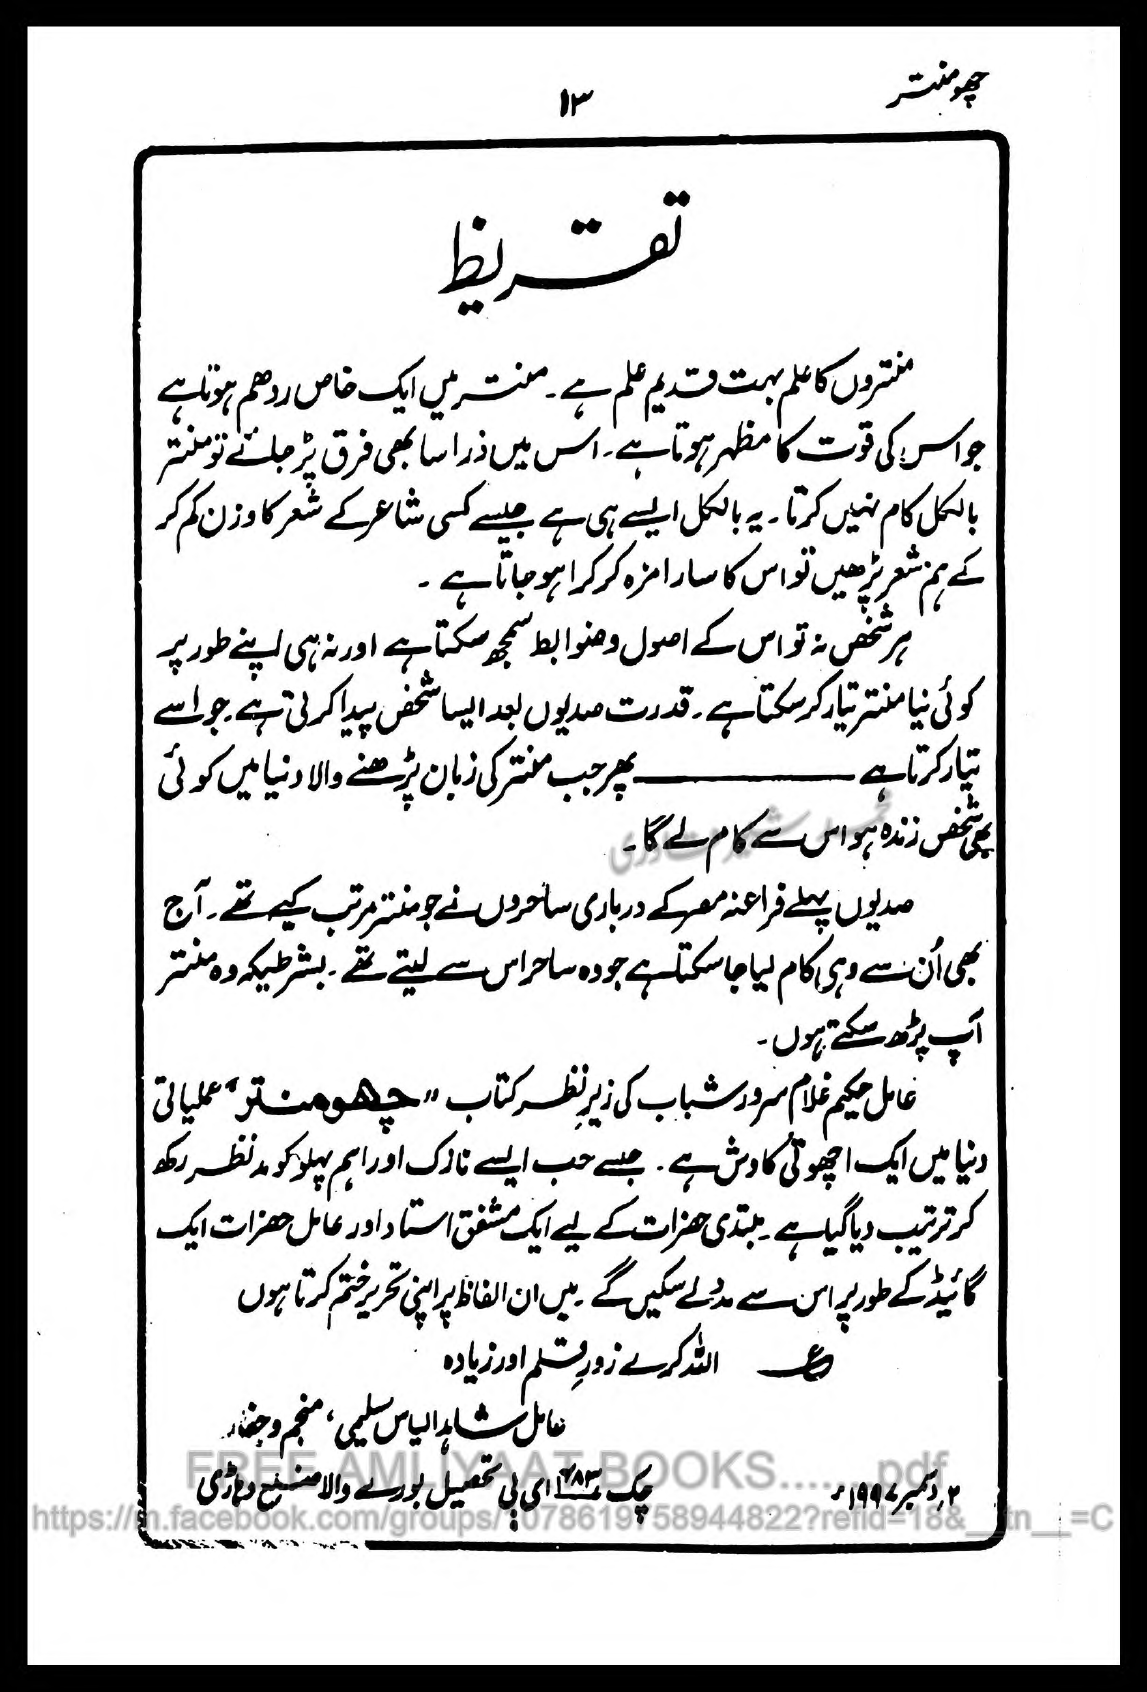 چھو منتر
۱۳
تقریظ
منتروں کا علم بہت قدیم علم ہے۔ منتر میں ایک خاص ردھم ہوتا ہے
جو اس کی قوت کا مظہر ہوتا ہے۔ اس میں ذرا سا بھی فرق پڑ جائے تو منتر
بالکل کام نہیں کرتا۔ یہ بالکل ایسے ہی ہے جیسے کسی شاعر کے شعر کا وزن کم کر
کے ہم شعر پڑھیں تو اس کا سارا مزہ کرکرا ہو جاتا ہے۔
ہر شخص نہ تو اس کے اصول و ضوابط سمجھ سکتا ہے اور نہ ہی اپنے طور پر
کوئی نیا منتر تیار کر سکتا ہے۔ قدرت صدیوں بعد ایسا شخص پیدا کرتی ہے۔ جو اسے
تیار کرتا ہے ———— پھر جب منتر کی زبان پڑھنے والا دنیا میں کوئی
بھی شخص زندہ ہو اس سے کام لے گا۔
صدیوں پہلے فراعنہ مصر کے درباری ساحروں نے جو منتر مرتب کیے تھے۔ آج
بھی اُن سے وہی کام لیا جا سکتا ہے جو وہ ساحر اس سے لیتے تھے۔ بشرطیکہ وہ منتر
آپ پڑھ سکتے ہوں۔
عامل حکیم غلام سرور شباب کی زیرِ نظر کتاب "چھو منتر" عملیاتی
دنیا میں ایک اچھوتی کاوش ہے۔ جسے حب ایسے نازک اور اہم پہلو کو مدنظر رکھ
کر ترتیب دیا گیا ہے۔ مبتدی حضرات کے لیے ایک مشفق استاد اور عامل حضرات ایک
گائیڈ کے طور پر اس سے مدد لے سکیں گے۔ میں ان الفاظ پر اپنی تحریر ختم کرتا ہوں
ع اللہ کرے زورِ قلم اور زیادہ
عامل شاہد الیاس سلیمی، منجم و جفار
۲، دسمبر ۱۹۹۷ء
چک ۷۸۳ ای بی تحصیل بورے والا ضلع وہاڑی
FREE AMLIYAAT BOOKS.......pdf
https://m.facebook.com/groups/1078619758944822?refid=18&__tn__=C